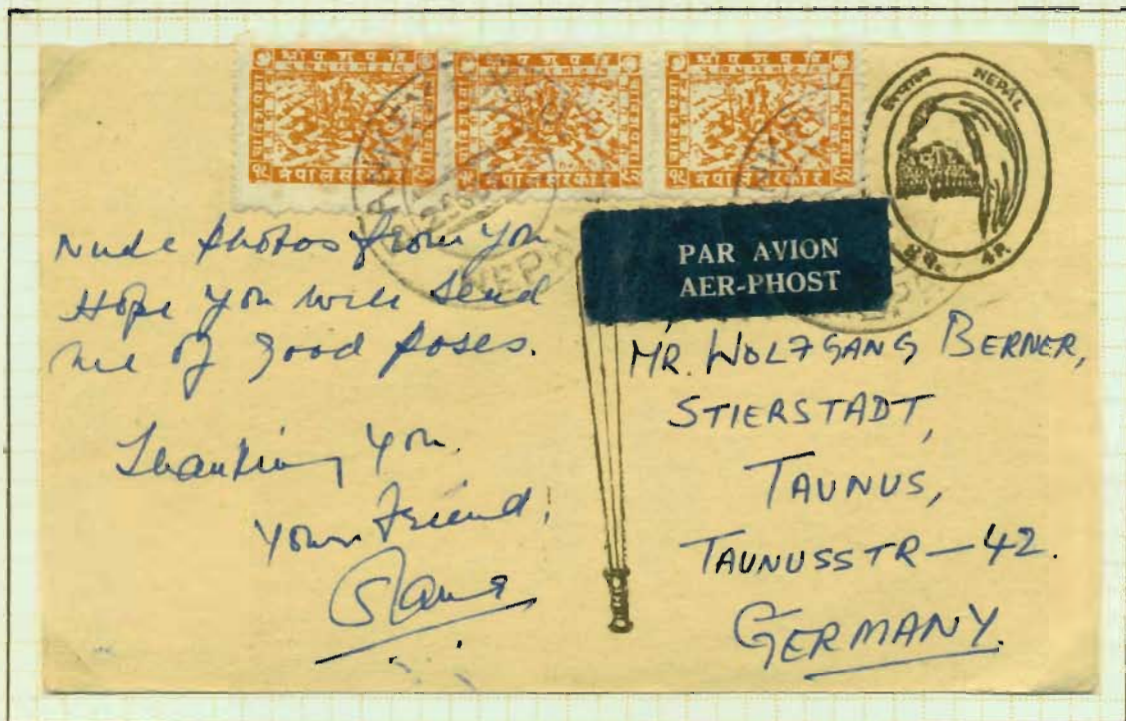 श्री ५ पशुपति
नेपाल सरकार
श्री पशुपति
नेपाल सरकार
श्री पशुपति
नेपाल सरकार
नेपाल NEPAL
4R
NEPAL
PAR AVION
AER-PHOST
Nude photos from you
Hope you will send
me of good poses.
Thanking you.
Your Friend!
MR. WOLFGANG BERNER,
STIERSTADT,
TAUNUS,
TAUNUSSTR—42.
GERMANY.